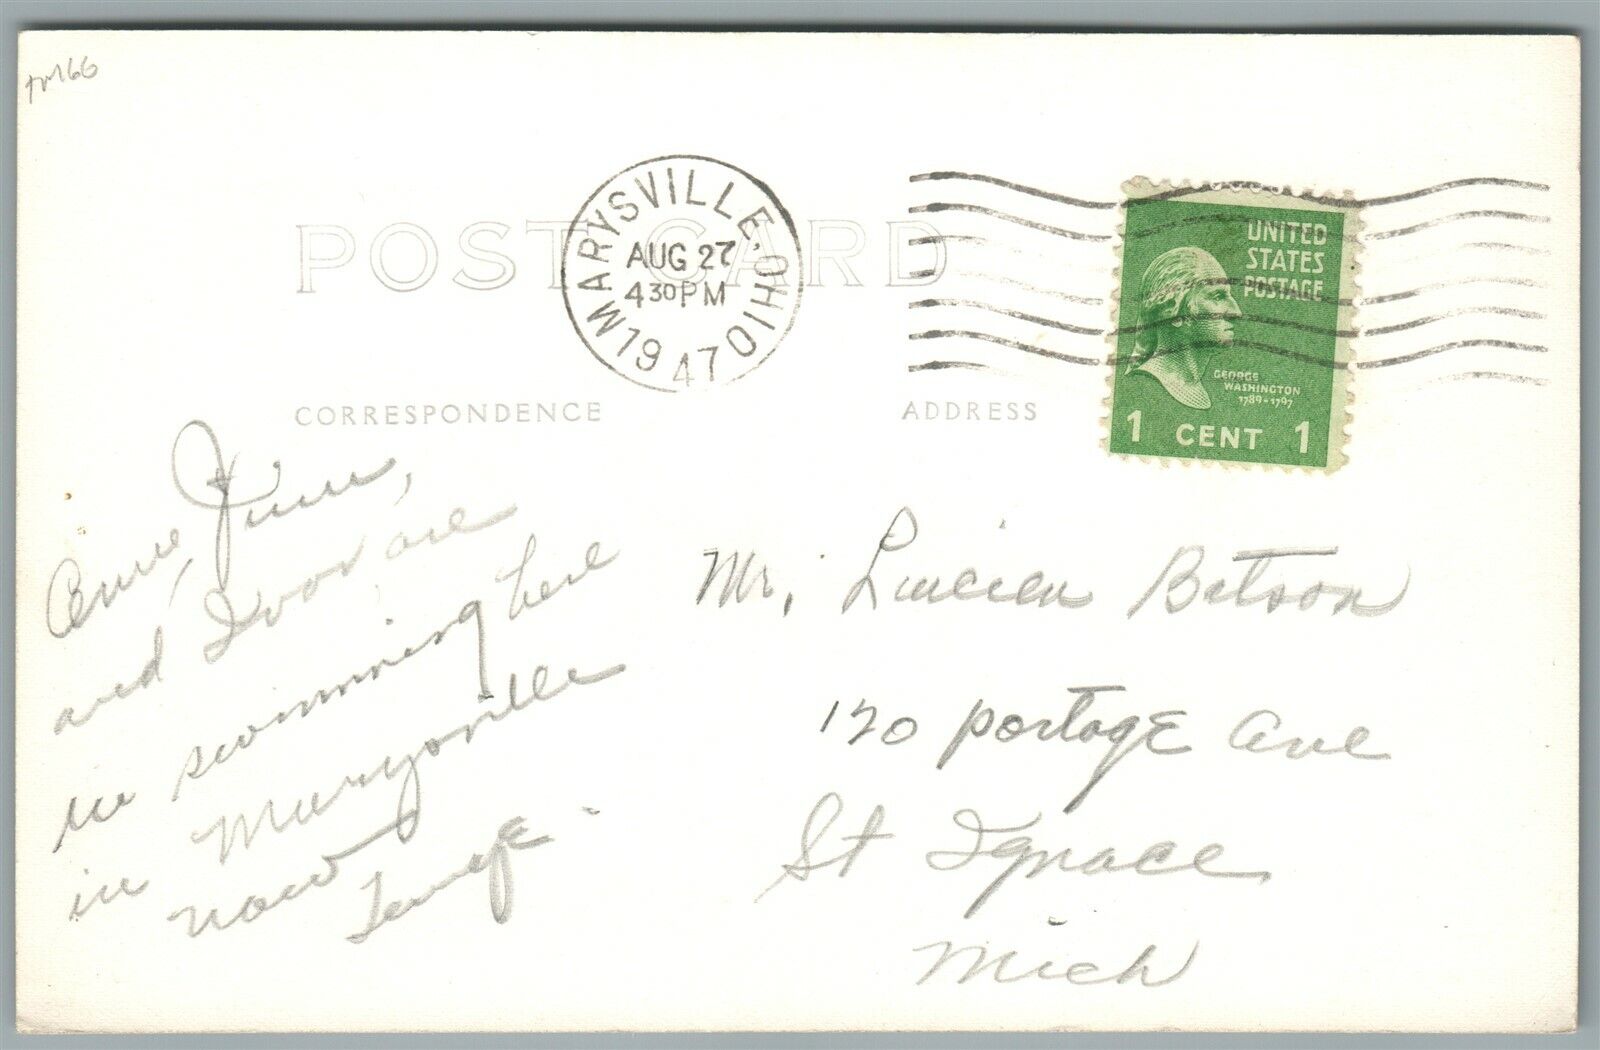 POST CARD
MARYSVILLE, OHIO
AUG 27
4 30 PM
1947
UNITED
STATES
POSTAGE
GEORGE
WASHINGTON
1789-1797
1 CENT 1
CORRESPONDENCE
ADDRESS
Anne, June,
and Ivor are
in swimming here
in Marysville
now
Mr. Lucien Batson
120 Portage Ave
St Ignace
Mich